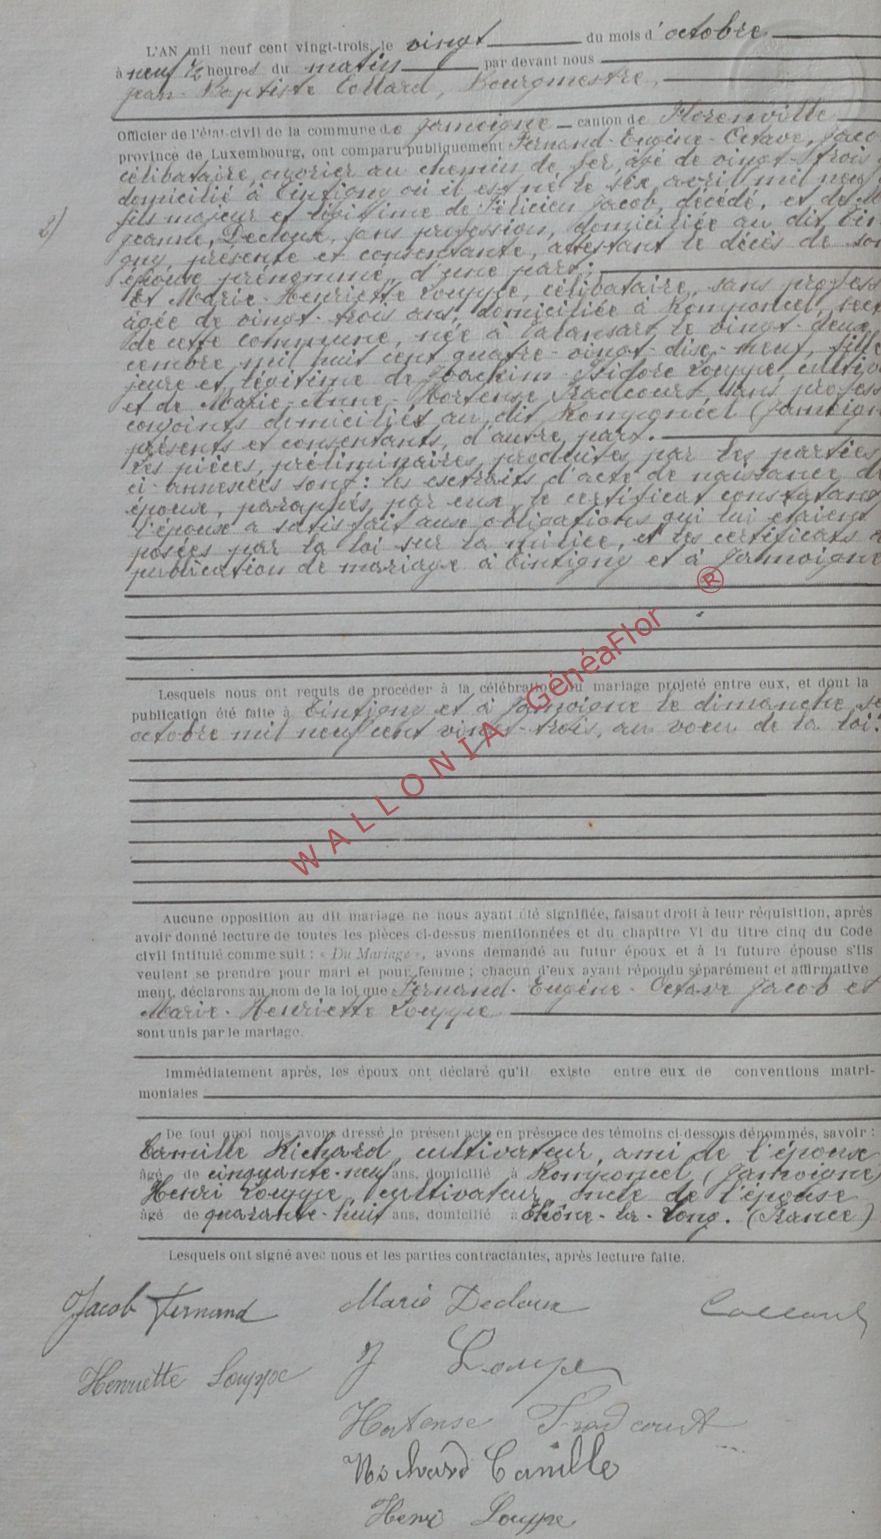 L'AN mil neuf cent vingt-trois, le vingt du mois d'octobre
à neuf ½ heures du matin par devant nous
Jean-Baptiste Collard, Bourgmestre,
Officier de l'état-civil de la commune de Jamoigne canton de Florenville
province de Luxembourg, ont comparu publiquement Fernand-Eugène-Octave, Jacob
célibataire, ouvrier au chemin de fer, âgé de vingt-trois
domicilié à Tintigny où il est né le six avril mil neuf
2)
fils majeur et légitime de Félicien Jacob, décédé, et de M
Jeanne, Decloux, sans profession, domiciliée au dit Tin
gny, présente et consentante, attestant le décès de son
époux prénommé, d'une part;
Et Marie-Henriette Louppe, célibataire, sans profess
âgée de vingt-trois ans, domiciliée à Romponcel, sect
de cette commune, née à Valansart le vingt-deux
cembre mil huit cent quatre-vingt-dix-neuf, fille
jeure et légitime de Joachim-Isidore Louppe, cultiv
et de Marie-Anne-Hortense Fradcourt, sans profess
conjoints domiciliés au dit Romponcel (Jamoigne
présents et consentants, d'autre part.
Les pièces préliminaires produites par les parties
ci-annexées sont: les extraits d'acte de naissance d
époux, paraphés par eux, le certificat constatant
l'époux a satisfait aux obligations qui lui étaient
posées par la loi sur la milice, et les certificats d
publication de mariage à Tintigny et à Jamoigne
Lesquels nous ont requis de procéder à la célébration du mariage projeté entre eux, et dont la
publication été faite à Tintigny et à Jamoigne le dimanche se
octobre mil neuf cent vingt-trois, au voeu de la loi.
WALLONIA GénéaFlor ®
Aucune opposition au dit mariage ne nous ayant été signifiée, faisant droit à leur réquisition, après
avoir donné lecture de toutes les pièces ci-dessus mentionnées et du chapitre VI du titre cinq du Code
civil intitulé comme suit : « Du Mariage », avons demandé au futur époux et à la future épouse s'ils
veulent se prendre pour mari et pour femme ; chacun d'eux ayant répondu séparément et affirmative
ment, déclarons au nom de la loi que Fernand-Eugène-Octave Jacob et
Marie-Henriette Louppe
sont unis par le mariage.
Immédiatement après, les époux ont déclaré qu'il existe entre eux de conventions matri-
moniales
De tout quoi nous avons dressé le présent acte en présence des témoins ci-dessous dénommés, savoir :
Camille Richard, cultivateur, ami de l'épouse
âgé de cinquante-neuf ans, domicilié à Romponcel (Jamoigne)
Henri Louppe, cultivateur, oncle de l'épouse
âgé de quarante-huit ans, domicilié à Thône-la-Long. (France)
Lesquels ont signé avec nous et les parties contractantes, après lecture faite.
Jacob Fernand Marie Decloux Collard
Henriette Louppe J Louppe
Hortense Fradcourt
Richard Camille
Henri Louppe